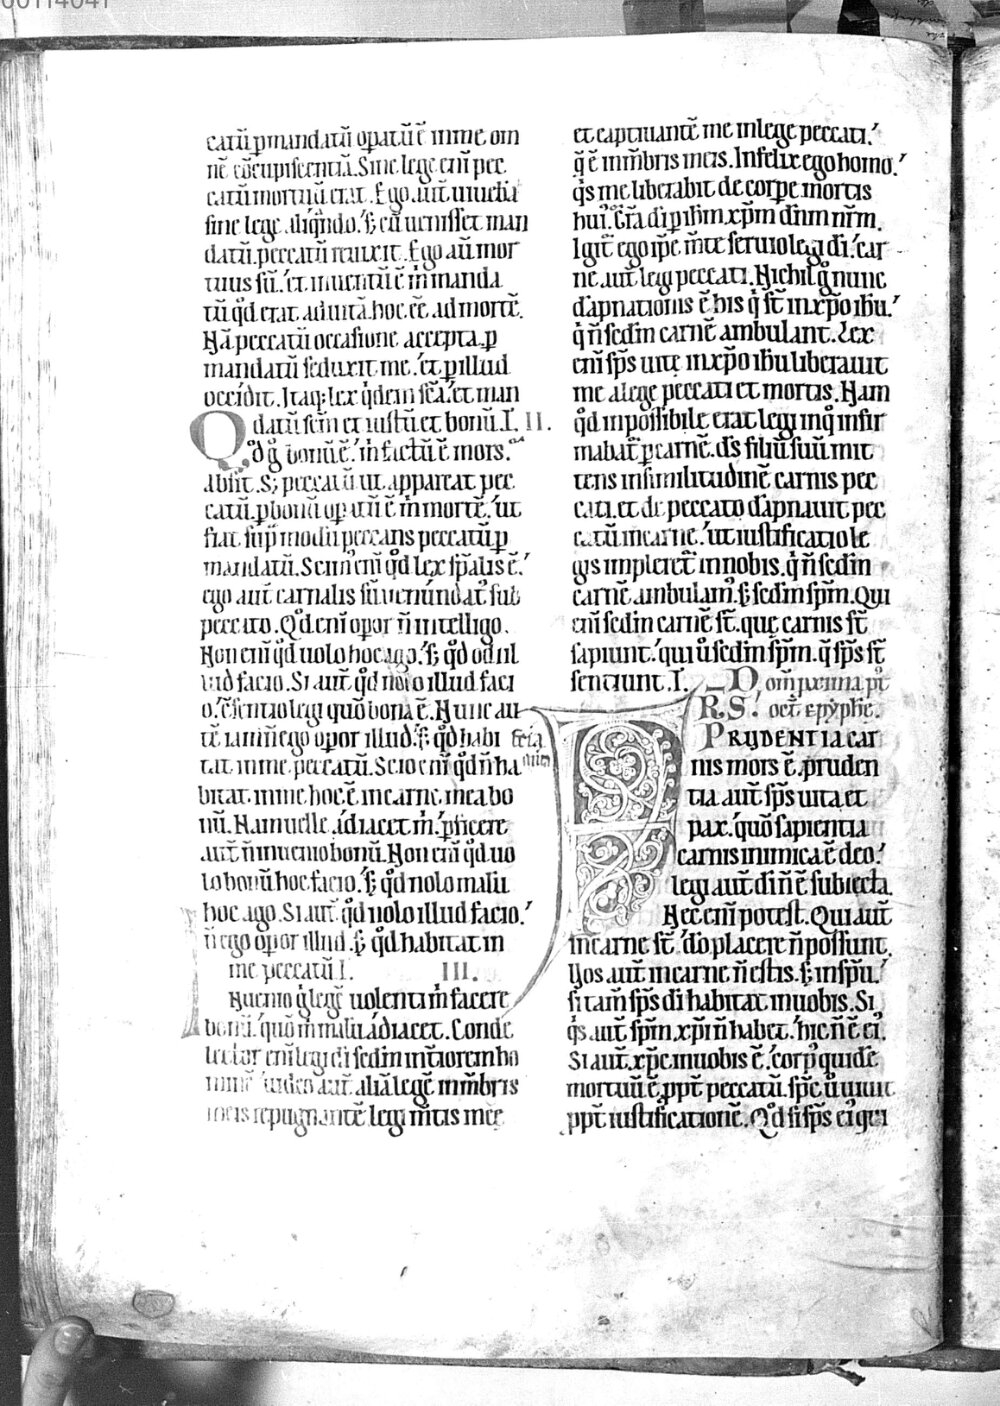 catũ ꝑmandatũ opatũ ẽ inme om
nẽ cõcupiscentiã. Sine lege eni᷑ pec
catũ mortuũ erat. Ego aut᷑ uiuebã
sine lege aliq̃ndo. Sʒ cũ uenisset man
datũ. peccatũ reuixit. Ego aũt mor
tuus sũ. et inuentũ ẽ m̃ manda
tũ qd̃ erat aduitã. hoc eẽ admortẽ.
Nã peccatũ occasione accepta. ꝑ
mandatũ seduxit me. et ꝑillud
occidit. Itaq; lex qdem sc̃a. et man
datũ sc̃m et iustũ et bonũ. L̃. II.
Qd g̃ bonũ ẽ. m̃ factũ ẽ mors.
absit. Sʒ peccatũ ut appareat pec
catũ. ꝑbonũ opatũ ẽ m̃ mortẽ. ut
fiat sup̃ modũ peccans peccatũ ꝑ
mandatũ. Scim᷒ eni᷑ qd̃ lex sp̃alis ẽ.
ego aut᷑ carnalis sũ. uenundat᷒ sub
peccato. Qd̃ eni᷑ opor ñ intelligo.
Non eni᷑ qd̃ uolo hoc ago. sʒ qd̃ odi il
lud facio. Si aut᷑ qd̃ nolo illud faci
o. c̃sentio legi quõ bona ẽ. Nunc au
tẽ iam ñ ego opor illud. sʒ qd̃ habi
tat inme peccatũ. Scio eni᷑ qd̃ ñ ha
bitat inme hoc ẽ incarne mea bo
nũ. Nam uelle adiacet m̃. ꝑficere
aut᷑ ñ inuenio bonũ. Non eni᷑ qd̃ uo
lo bonũ hoc facio. sʒ qd̃ nolo malũ
hoc ago. Si aut᷑ qd̃ nolo illud facio.
ñ ego opor illud. sʒ qd̃ habitat in
me peccatũ. L̃. III.
Nuenio g̃ legẽ uolenti m̃ facere
bonũ. quõ m̃ malũ adiacet. Conde
lector eni᷑ legi di᷑ sc̃dm int̃iorem ho
minẽ. uideo aut᷑ aliã legẽ inm̃bris
meis repugnantẽ legi m̃tis meę
et captiuantẽ me inlege peccati.
q̃ ẽ inm̃bris meis. Infelix ego homo.
q̃s me liberabit de corpe mortis
hui᷒. Gr̃a di᷑ ꝑ ih̃m xp̃m dñm nr̃m.
Igit᷑ ego ip̃e. m̃te seruio legi di᷑. car
ne aut᷑ legi peccati. Nichil g̃ nunc
dãpnationis ẽ his q̃ st̃ inxp̃o ih̃u.
q̃ ñ sc̃dm carnẽ ambulant. Lex
eni᷑ sp̃s uitę inxp̃o ih̃u liberauit
me alege peccati et mortis. Nam
qd̃ impossibile erat legi inq̃ infir
mabat᷑ ꝑ carnẽ. ds̃ filiũ suũ mit
tens insimilitudinẽ carnis pec
cati. et de peccato dãpnauit pec
catũ incarne. ut iustificatio le
gis impleret᷑ innobis. q̃ ñ sc̃dm
carnẽ ambulam᷒. sʒ sc̃dm sp̃m. Qui
eni᷑ sc̃dm carnẽ st̃. quę carnis st̃
sapiunt. qui u᷑ sc̃dm sp̃m. q̃ sp̃s st̃
sentiunt. L̃. Dom̃ prima pt̃
oct̃. epyphię.
PRUDENTIA car
nis mors ẽ. pruden
tia aut᷑ sp̃s uita et
pax. quõ sapientia
carnis inimica ẽ deo.
legi aut᷑ di᷑ ñ ẽ subiecta.
Nec eni᷑ potest. Qui aut᷑
incarne st̃. do᷑ placere ñ possunt.
Uos aut᷑ incarne ñ estis. sʒ insp̃u.
si tam̃ sp̃s di᷑ habitat inuobis. Si
q̃s aut᷑ sp̃m xp̃i ñ habet. hic ñ ẽ ei᷒.
Si aut᷑ xp̃c inuobis ẽ. corp᷒ quidẽ
mortuũ ẽ ꝓpt᷑ peccatũ. sp̃c u᷑ uiuit
ꝓpt᷑ iustificationẽ. Qd̃ si sp̃s ei᷒ qui